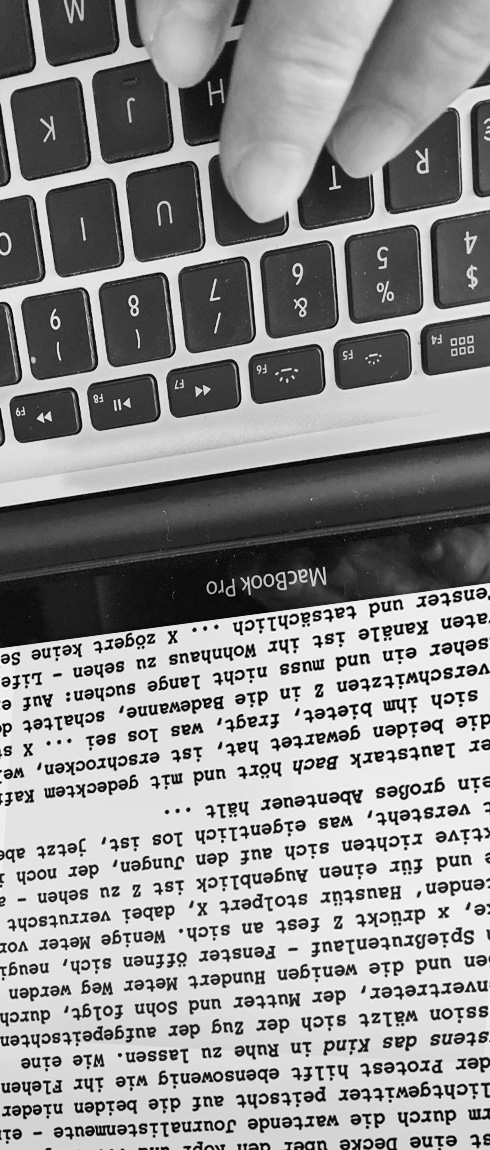 st eine Decke über den Kopf und ...
rm durch die wartende Journalistenmeute – ein
lichtgewitter peitscht auf die beiden nieder
der Protest hilft ebensowenig wie ihr Flehen
stens das Kind in Ruhe zu lassen. Wie eine
ssion wälzt sich der Zug der aufgepeitschten
nvertreter, der Mutter und Sohn folgt, durch
en und die wenigen Hundert Meter Weg werden
n Spießrutenlauf – Fenster öffnen sich, neugi
ke, x drückt Z fest an sich. Wenige Meter vor
cenden' Haustür stolpert X, dabei verrutscht
e und für einen Augenblick ist Z zu sehen – a
ktive richten sich auf den Jungen, der noch i
t versteht, was eigentlich los ist, jetzt abe
ein großes Abenteuer hält ...
er lautstark Bach hört und mit gedecktem Kaff
die beiden gewartet hat, ist erschrocken, wei
sich ihm bietet, fragt, was los sei ... X st
verschwitzten Z in die Badewanne, schaltet de
seher ein und muss nicht lange suchen: Auf e
aten Kanäle ist ihr Wohnhaus zu sehen – Life
enster und tatsächlich ... X zögert keine Se
MacBook Pro
F4 F5 F6 F7 F8 F9
$ % & / ( )
4 5 6 7 8 9
€ R T U I O
H J K
M